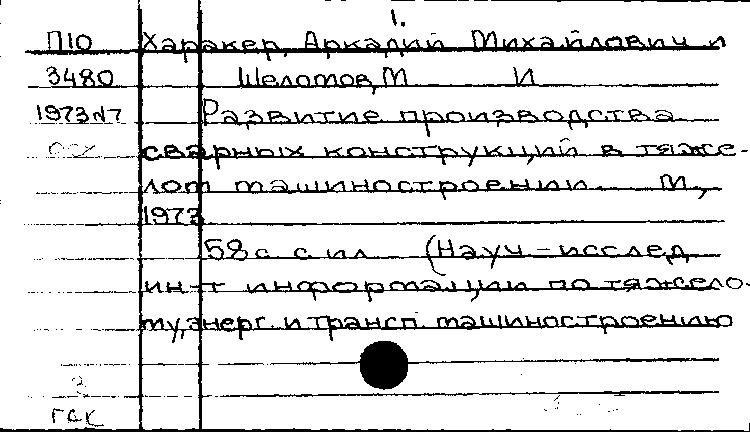 1.
П10 Харакер, Аркадий Михайлович и
3480 Шеломов, М И
1973 N7 Развитие производства
сварных конструкций в тяже-
лом машиностроении. М.,
1973
58 с. с ил (Науч-исслед
ин-т информации по тяжело-
му, энерг. и трансп. машиностроению
ГСК